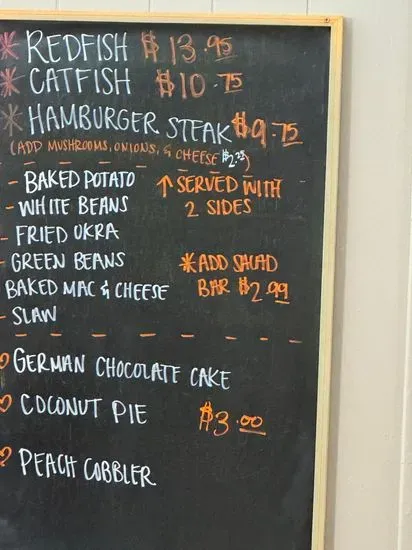 * REDFISH $13.95
* CATFISH $10.75
* HAMBURGER STEAK $9.75
(ADD MUSHROOMS, ONIONS, & CHEESE $2.25)
- BAKED POTATO
↑ SERVED WITH
- WHITE BEANS
2 SIDES
- FRIED OKRA
- GREEN BEANS
* ADD SALAD
BAKED MAC & CHEESE
BAR $2.99
- SLAW
♡ GERMAN CHOCOLATE CAKE
♡ COCONUT PIE
$3.00
♡ PEACH COBBLER